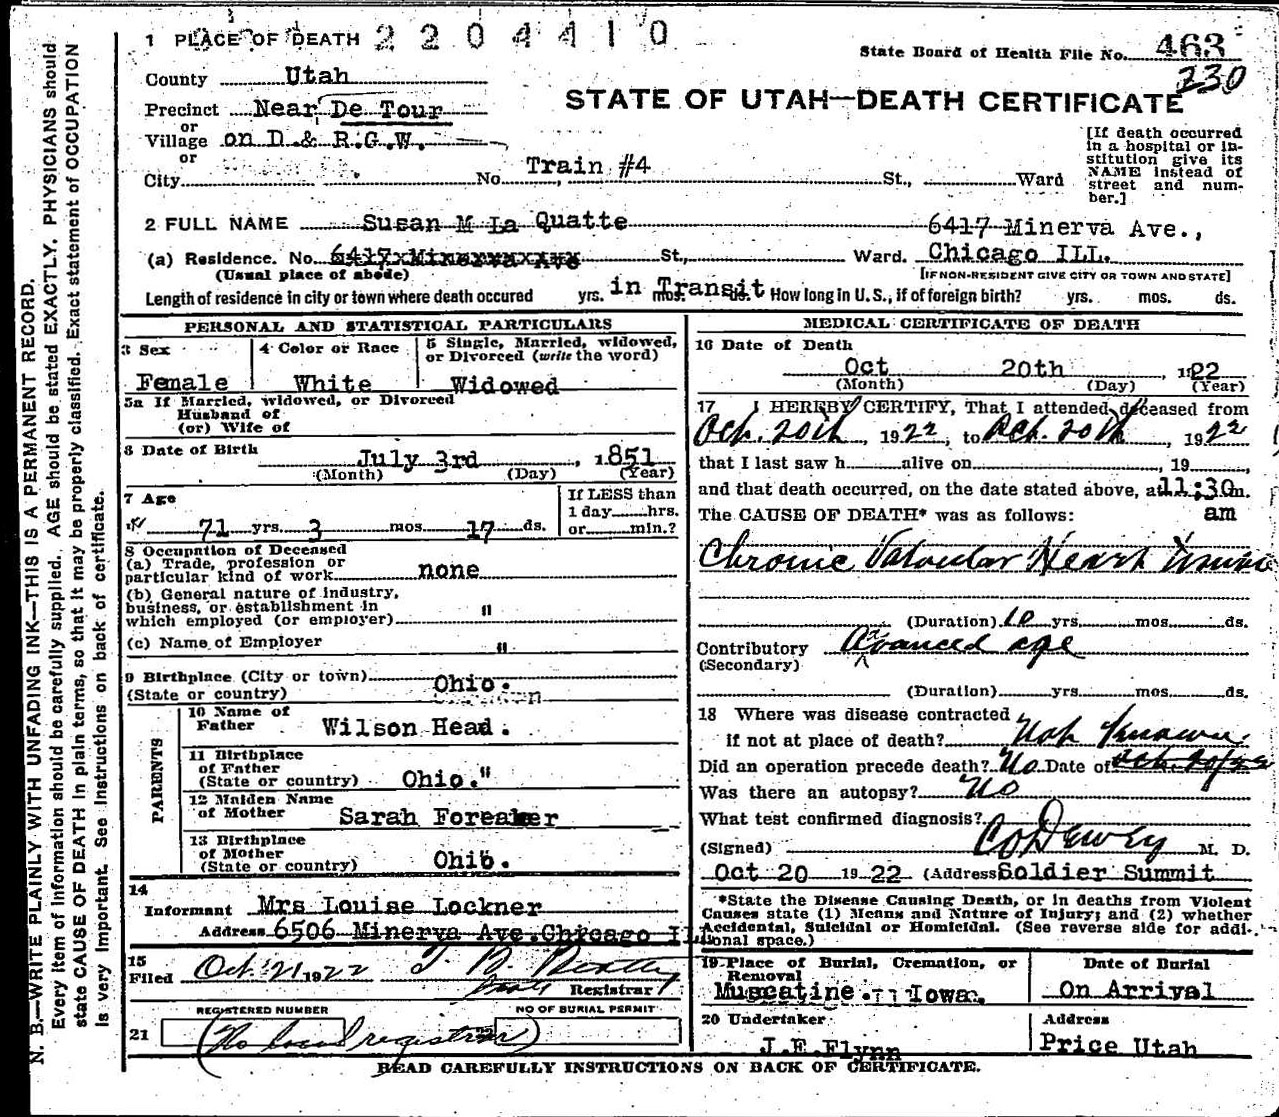 1 PLACE OF DEATH 2204410
State Board of Health File No. 463
230
County Utah
STATE OF UTAH—DEATH CERTIFICATE
Precinct Near De Tour
or
Village on D.& R.G.W.
or
City No. Train #4 St., Ward
[If death occurred
in a hospital or in-
stitution give its
NAME instead of
street and num-
ber.]
2 FULL NAME Susan M La Quatte 6417 Minerva Ave.,
(a) Residence. No. 6417 Minerva Ave St., Ward. Chicago ILL.
(Usual place of abode) [IF NON-RESIDENT GIVE CITY OR TOWN AND STATE]
Length of residence in city or town where death occured yrs. in Transit mos. ds. How long in U.S., if of foreign birth? yrs. mos. ds.
PERSONAL AND STATISTICAL PARTICULARS
3 Sex
Female
4 Color or Race
White
5 Single, Married, widowed,
or Divorced (write the word)
Widowed
5a If Married, widowed, or Divorced
Husband of
(or) Wife of
6 Date of Birth July 3rd, 1851
(Month) (Day) (Year)
7 Age
71 yrs. 3 mos. 17 ds.
If LESS than
1 day hrs.
or min.?
8 Occupation of Deceased
(a) Trade, profession or
particular kind of work none
(b) General nature of industry,
business, or establishment in
which employed (or employer) "
(c) Name of Employer "
9 Birthplace (City or town) Ohio.
(State or country)
PARENTS
10 Name of
Father Wilson Head.
11 Birthplace
of Father
(State or country) Ohio."
12 Maiden Name
of Mother Sarah Foreaker
13 Birthplace
of Mother
(State or country) Ohio.
14
Informant Mrs Louise Lockner
Address 6506 Minerva Ave.Chicago Ill
15
Filed Oct 21 1922
Registrar
REGISTERED NUMBER NO OF BURIAL PERMIT
21 (No local registrar)
MEDICAL CERTIFICATE OF DEATH
16 Date of Death
Oct 20th, 1922
(Month) (Day) (Year)
17 I HEREBY CERTIFY, That I attended deceased from
Oct. 20th, 1922, to Oct. 20th, 1922
that I last saw h alive on , 19 ,
and that death occurred, on the date stated above, at 11:30 m.
The CAUSE OF DEATH* was as follows: am
Chronic Valvular Heart
(Duration) 10 yrs. mos. ds.
Contributory Advanced age
(Secondary)
(Duration) yrs. mos. ds.
18 Where was disease contracted
if not at place of death? Not Known
Did an operation precede death? No Date of Oct 20/22
Was there an autopsy? No
What test confirmed diagnosis?
(Signed) C O Dewey M. D.
Oct 20 1922 (Address Soldier Summit
*State the Disease Causing Death, or in deaths from Violent
Causes state (1) Means and Nature of Injury; and (2) whether
Accidental, Suicidal or Homicidal. (See reverse side for addi-
tional space.)
19 Place of Burial, Cremation, or
Removal
Muscatine. Iowa.
Date of Burial
On Arrival
20 Undertaker
J.E.Flynn
Address
Price Utah
READ CAREFULLY INSTRUCTIONS ON BACK OF CERTIFICATE.
N. B.—WRITE PLAINLY WITH UNFADING INK—THIS IS A PERMANENT RECORD.
Every item of information should be carefully supplied. AGE should be stated EXACTLY. PHYSICIANS should
state CAUSE OF DEATH in plain terms, so that it may be properly classified. Exact statement of OCCUPATION
is very important. See instructions on back of certificate.